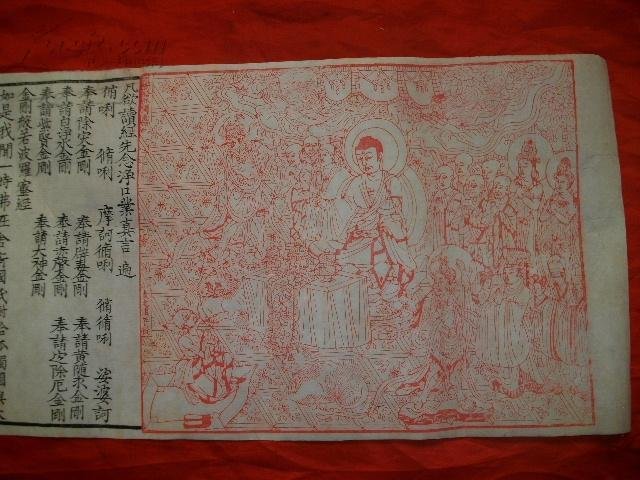 凡欲讀經先念淨口業真言 遍
脩唎 脩唎 摩訶脩唎 脩脩唎 娑婆訶
奉請除灾金剛 奉請辟毒金剛 奉請黃隨求金剛
奉請白淨水金剛 奉請赤聲金剛 奉請定除厄金剛
奉請紫賢金剛 奉請大神金剛
金剛般若波羅蜜經
如是我聞一時佛在舍衛國祇樹給孤獨園與大